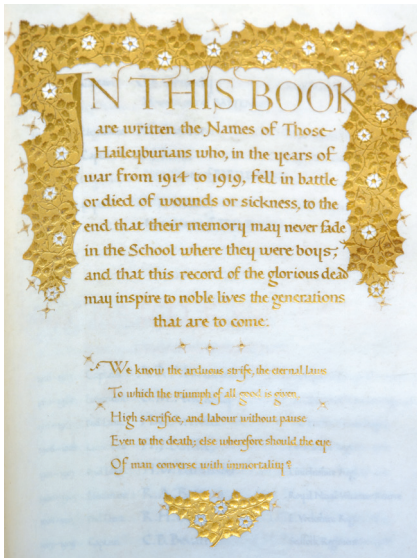 IN THIS BOOK
are written the Names of Those
Haileyburians who, in the years of
war from 1914 to 1919, fell in battle
or died of wounds or sickness, to the
end that their memory may never fade
in the School where they were boys;
and that this record of the glorious dead
may inspire to noble lives the generations
that are to come:
We know the arduous strife, the eternal laws
To which the triumph of all good is given,
High sacrifice, and labour without pause
Even to the death: else wherefore should the eye
Of man converse with immortality?